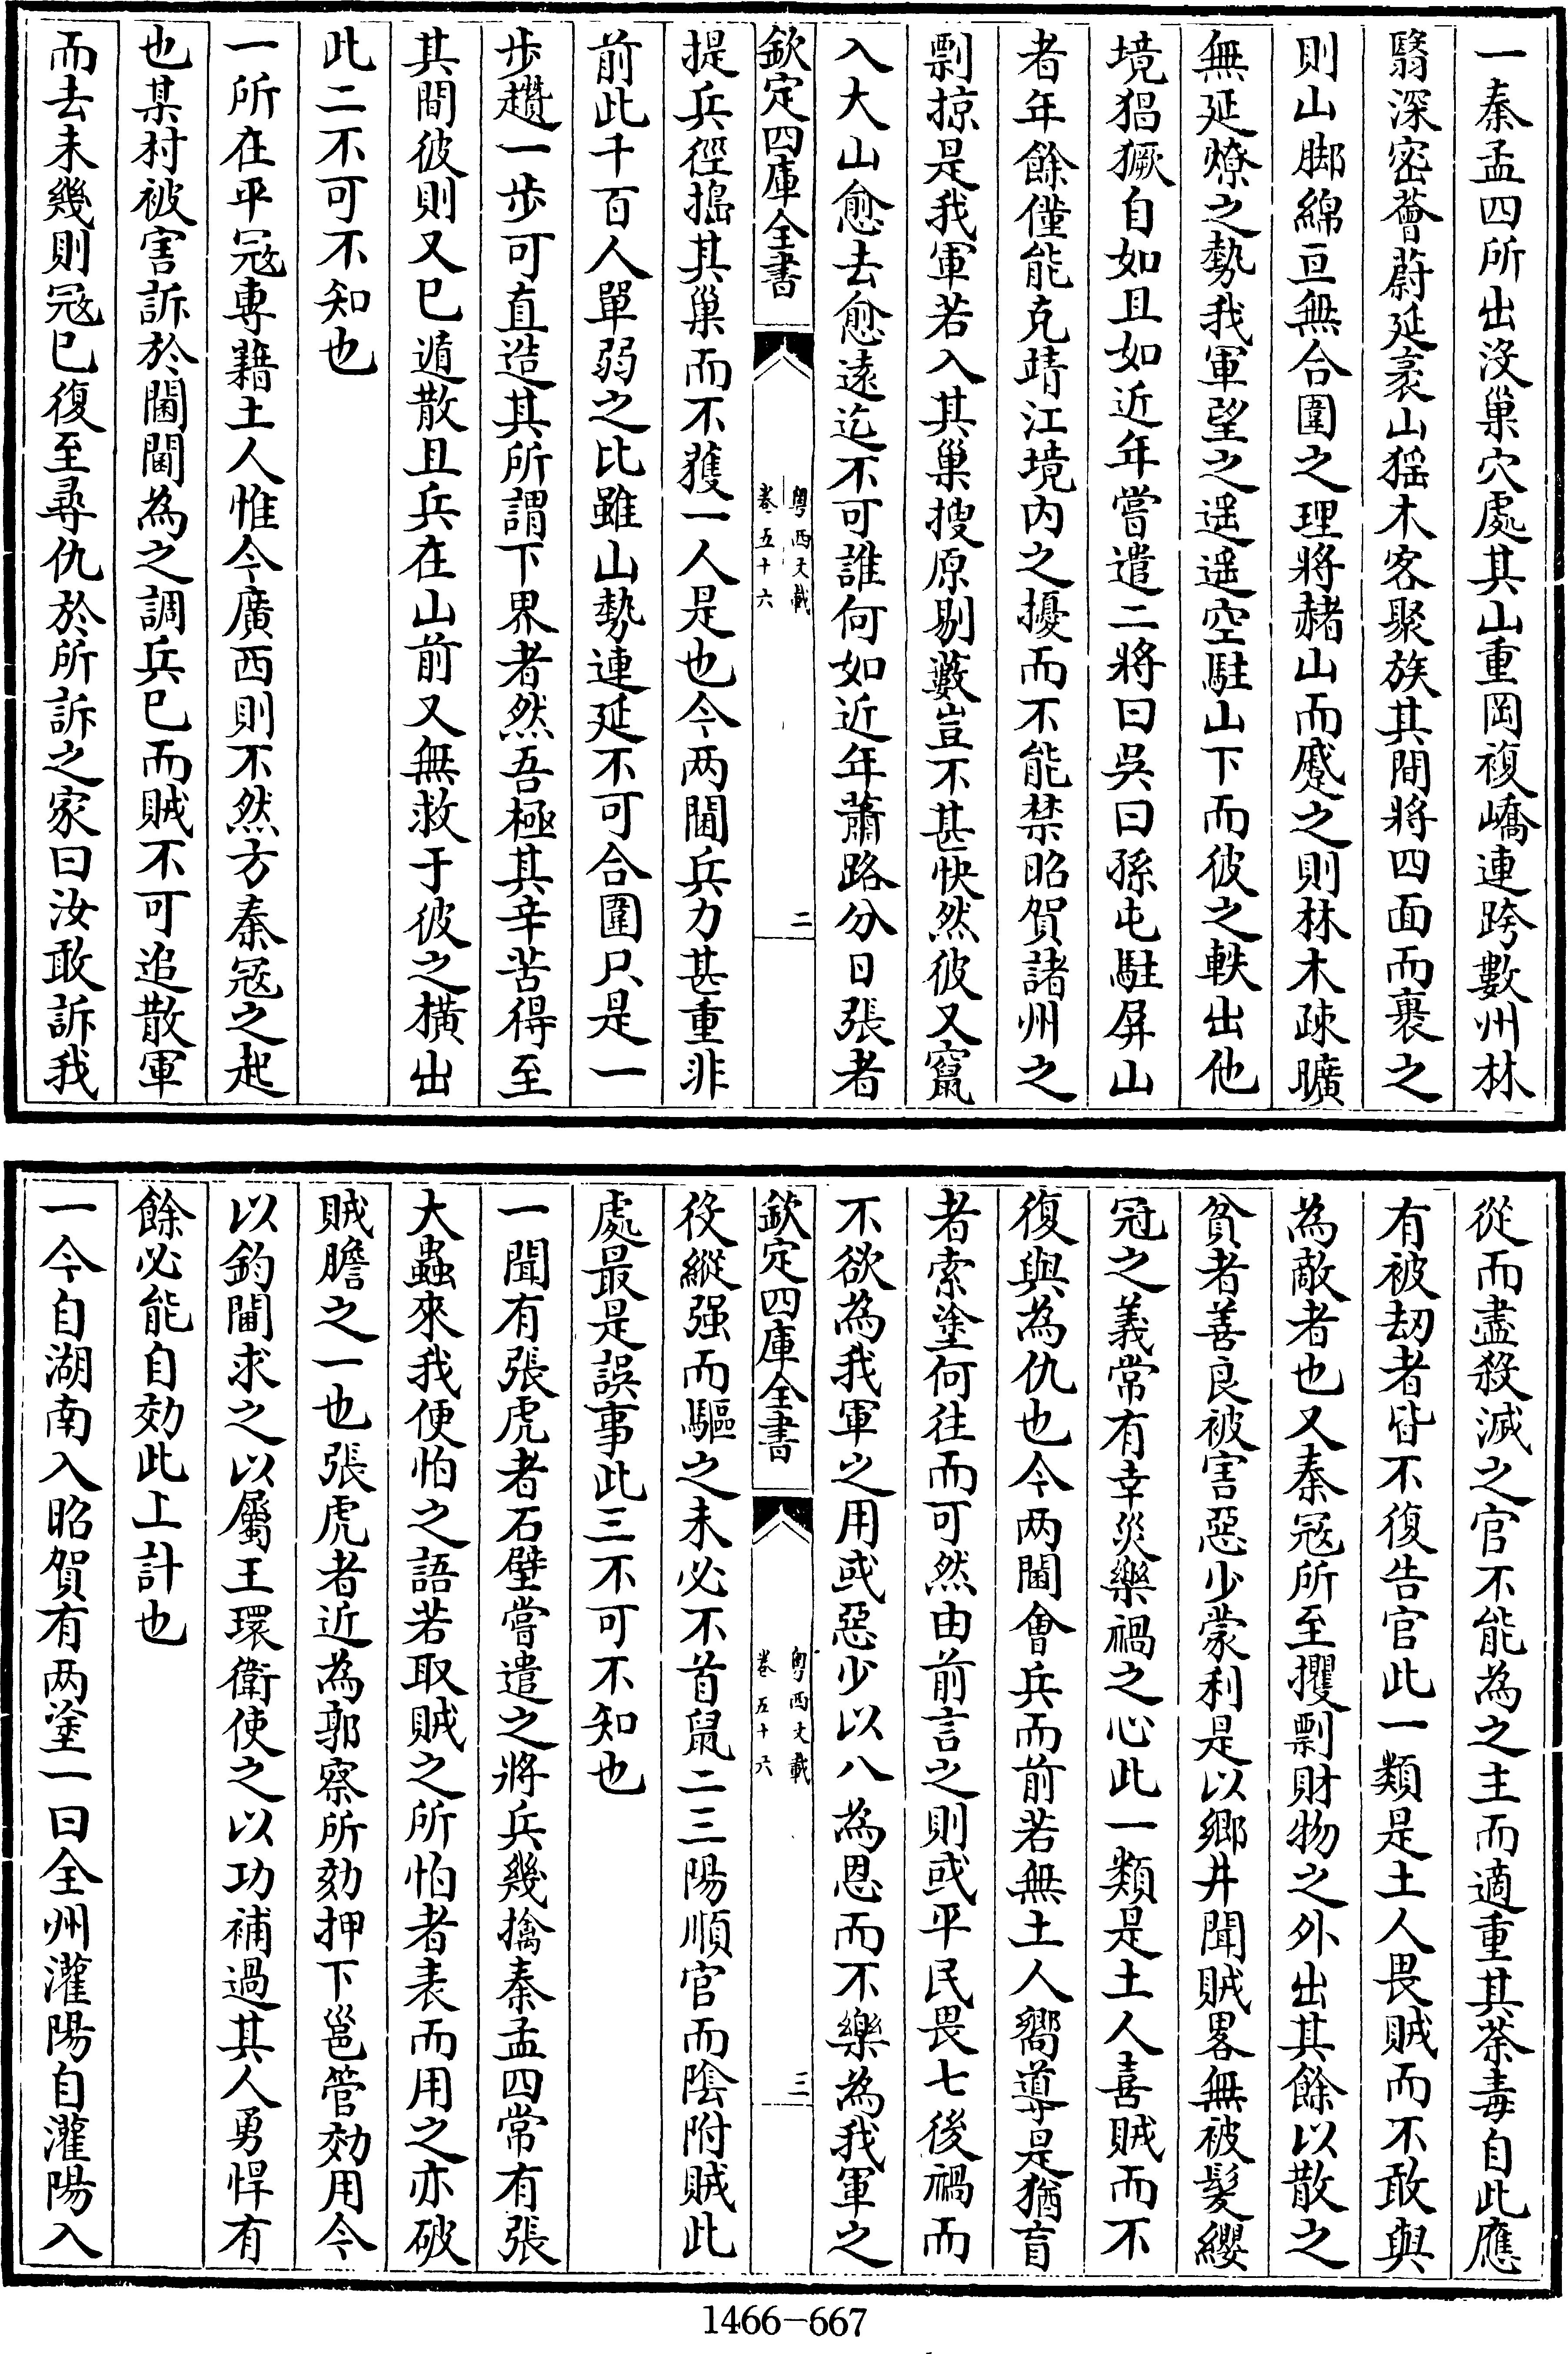 一秦孟四所出沒巢穴處其山重岡複嶠連跨數州林
翳深密薈蔚延袤山猺木客聚族其間將四面而裹之
則山脚綿亘無合圍之理將赭山而蹙之則林木疎曠
無延燎之勢我軍望之遥遥空駐山下而彼之軼出他
境猖獗自如且如近年嘗遣二將曰吳曰孫屯駐屏山
者年餘僅能克靖江境内之擾而不能禁昭賀諸州之
剽掠是我軍若入其巢搜原剔藪豈不甚快然彼又竄
入大山愈去愈遠迄不可誰何如近年蕭路分日張者
欽定四庫全書
粤西文載
卷五十六
二
提兵徑搗其巢而不獲一人是也今两閫兵力甚重非
前此千百人單弱之比雖山勢連延不可合圍只是一
步趲一步可直造其所謂下界者然吾極其辛苦得至
其間彼則又已遁散且兵在山前又無救于彼之横出
此二不可不知也
一所在平寇專藉土人惟今廣西則不然方秦寇之起
也某村被害訴於閫閫為之調兵已而賊不可追散軍
而去未幾則寇已復至尋仇於所訴之家曰汝敢訴我
從而盡殺滅之官不能為之主而適重其荼毒自此應
有被刼者皆不復告官此一類是土人畏賊而不敢與
為敵者也又秦寇所至攫剽財物之外出其餘以散之
貧者善良被害惡少蒙利是以鄉井聞賊畧無被髮纓
冠之義常有幸災樂禍之心此一類是土人喜賊而不
復與為仇也今两閫會兵而前若無土人嚮導是猶盲
者索塗何往而可然由前言之則或平民畏七後禍而
不欲為我軍之用或惡少以八為恩而不樂為我軍之
欽定四庫全書
粤西文載
卷五十六
三
役縱强而驅之未必不首鼠二三陽順官而陰附賊此
處最是誤事此三不可不知也
一聞有張虎者石壁嘗遣之將兵幾擒秦孟四常有張
大蟲來我便怕之語若取賊之所怕者表而用之亦破
賊膽之一也張虎者近為郭察所劾押下邕管効用今
以鈞閫求之以屬王環衛使之以功補過其人勇悍有
餘必能自効此上計也
一今自湖南入昭賀有两塗一曰全州灌陽自灌陽入
1466-667